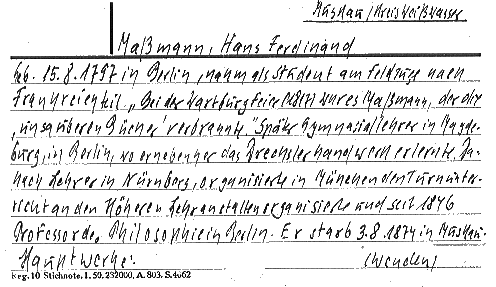 Muskau/Kreis Weißwasser
Maßmann, Hans Ferdinand
Geb. 15.8.1797 in Berlin, nahm als Student am Feldzuge nach
Frankreich teil. „Bei der Wartburgfeier (1817) war es Maßmann, der die
„unsauberen Bücher' verbrannte." Später Gymnasiallehrer in Magde-
burg, in Berlin, wo er nebenher das Drechslerhandwerk erlernte. Da-
nach Lehrer in Nürnberg, organisierte in München den Turnunter-
richt an den Höheren Lehranstalten organisierte und seit 1846
Professor der Philosophie in Berlin. Er starb 3.8.1874 in Muskau.
Hauptwerke: (wenden)
Reg. 10 Stichnote. 1. 50. 232000, A. 803. S. 4062